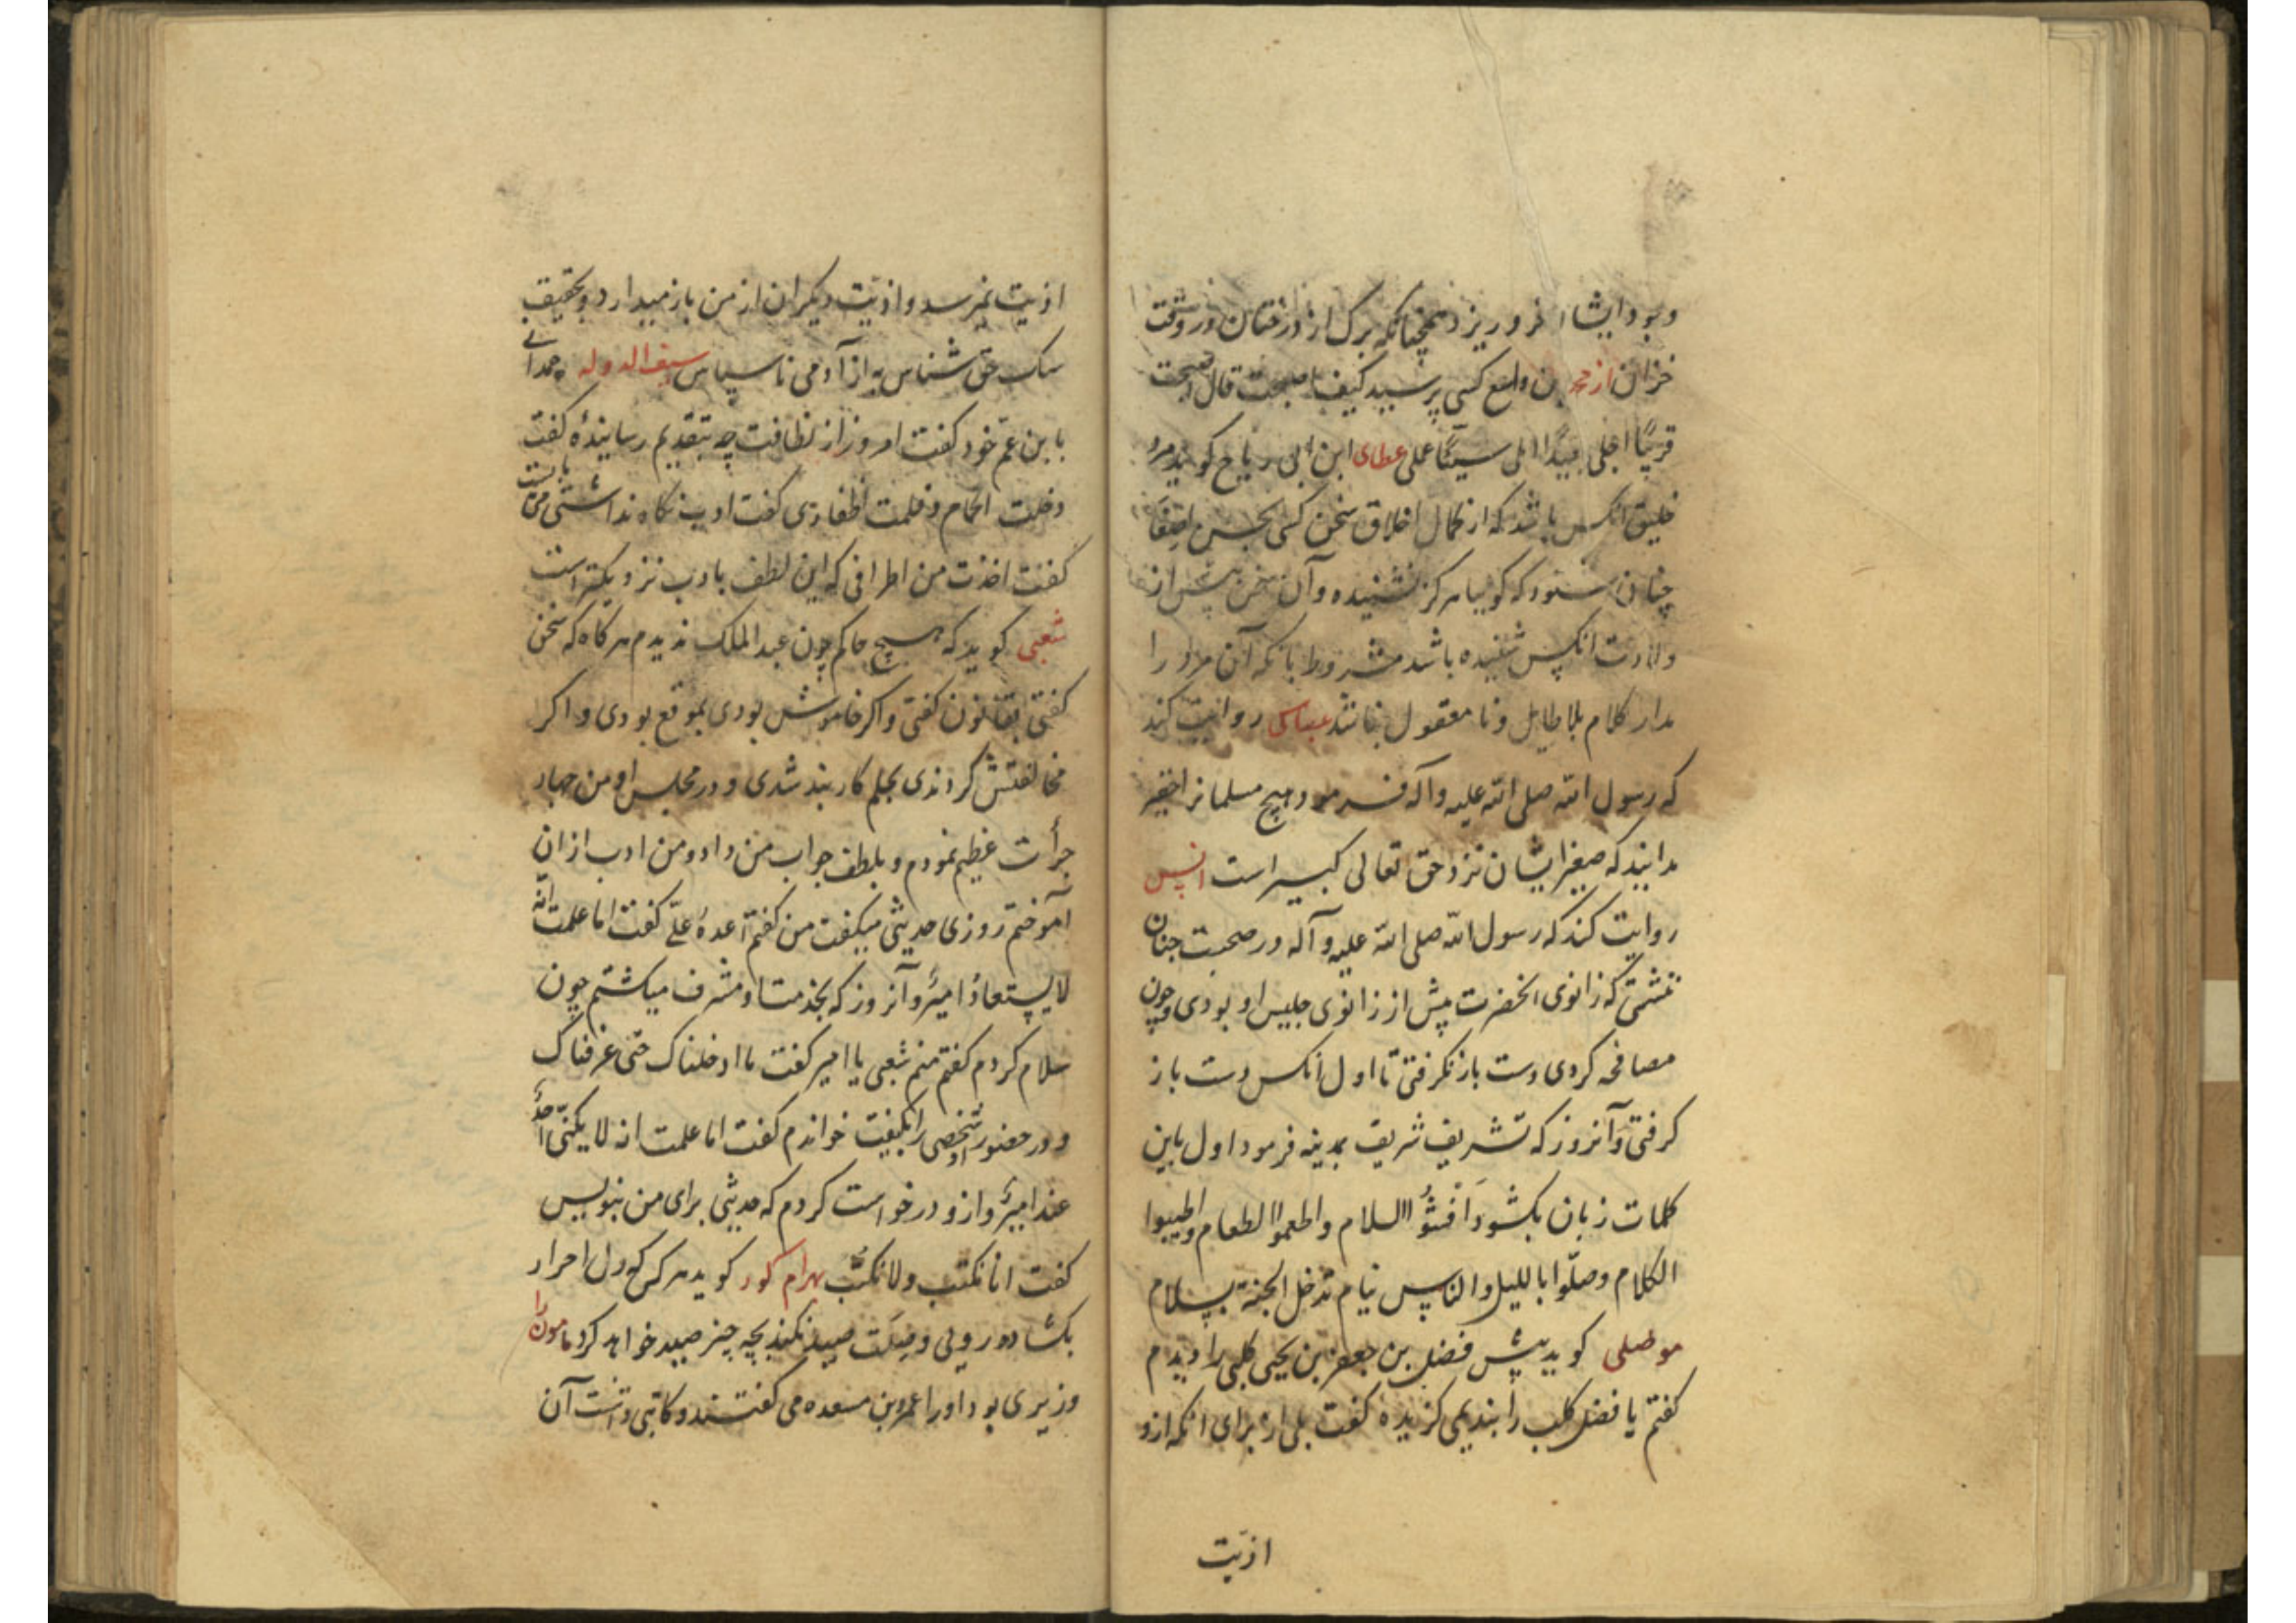 وبود ایشان فرو ریزد همچنانکه برک از درختان در وقت
خزان از محمد بن واسع کسی پرسید کیف اصبحت قال اصبحت
قریبًا اجلی بعیدًا املی سیئًا عملی عطای ابن ابی ریاح کوید مرد
خلیق انکس باشد که از کمال اخلاق سخن کسی بحسن اصغا
چنان شنود که کوییا هرکز نشنیده و آن سخن پیش از
ولادت انکس شنیده باشد مشروط بانکه آن مرد را
مدار کلام بلاطایل و نامعقول نباشد عباس روایت کند
که رسول الله صلی الله علیه وآله فرمود هیچ مسلمانرا حقیر
مدانید که صغیر ایشان نزد حق تعالی کبیر است انس
روایت کند که رسول الله صلی الله علیه وآله در صحبت چنان
ننشستی که زانوی انحضرت پیش از زانوی جلیس او بودی وچون
مصافحه کردی دست باز نکرفتی تا اول انکس دست باز
کرفتی وآنروز که تشریف شریف بمدینه فرمود اول باین
کلمات زبان بکشود اَفشُوُا السلام واطعموا الطعام واطیبوا
الکلام وصلّوا باللیل والناس نیام تدخل الجنة بسلام
موصلی کوید پیش فضل بن جعفر بن یحیی کلبی را دیدم
کفتم یا فضل کلب را بندیمی کزیدهٔ کفت بلی از برای انکه ازو
اذیّت
اذیت نمیرسد واذیّت دیکران از من باز میدارد وبحقیقت
سک حق شناس به از آدمی ناسپاس سیف الدوله حمدانی
با بن عم خود کفت امروز از نظافت چه بتقدیم رسانیدهٔ کفت
دخلت الحمام وقلمت اظفاری کفت ادب نکاه نداشتی می بایست
کفت اخذت من اطرافی که این لطف بادب نزدیکتر است
شعبی کوید که هیچ حاکم چون عبد الملک ندیدم هرکاه که سخن
کفتی بقانون کفتی واکر خاموش بودی بموقع بودی واکر
مخالفتش کردندی بحلم کاربند شدی ودر مجلس او من چهار
جرأت عظیم نمودم وبلطف جواب من داد ومن ادب ازان
آموختم روزی حدیثی میکفت من کفتم اعدهُ علیّ کفت اما علمت انّه
لایستعادُ امیرٌ وآنروز که بخدمت او مشرف میکشتم چون
سلام کردم کفتم منم شعبی یا امیر کفت ما ادخلناک حتی عرفناک
ودر حضور او شخصی را بکنیت خواندم کفت اما علمت انه لا یکنّی احدٌ
عند امیرٍ وازو درخواست کردم که حدیثی برای من بنویس
کفت انا نکتب ولا نکتّب بهرام کور کوید هرکس که دل احرار
بکشاده رویی وضیافت صید نکند بچه چیز صید خواهد کرد مامون را
وزیری بود اورا عمرو بن مسعده می کفتند وکاتبی داشت آن